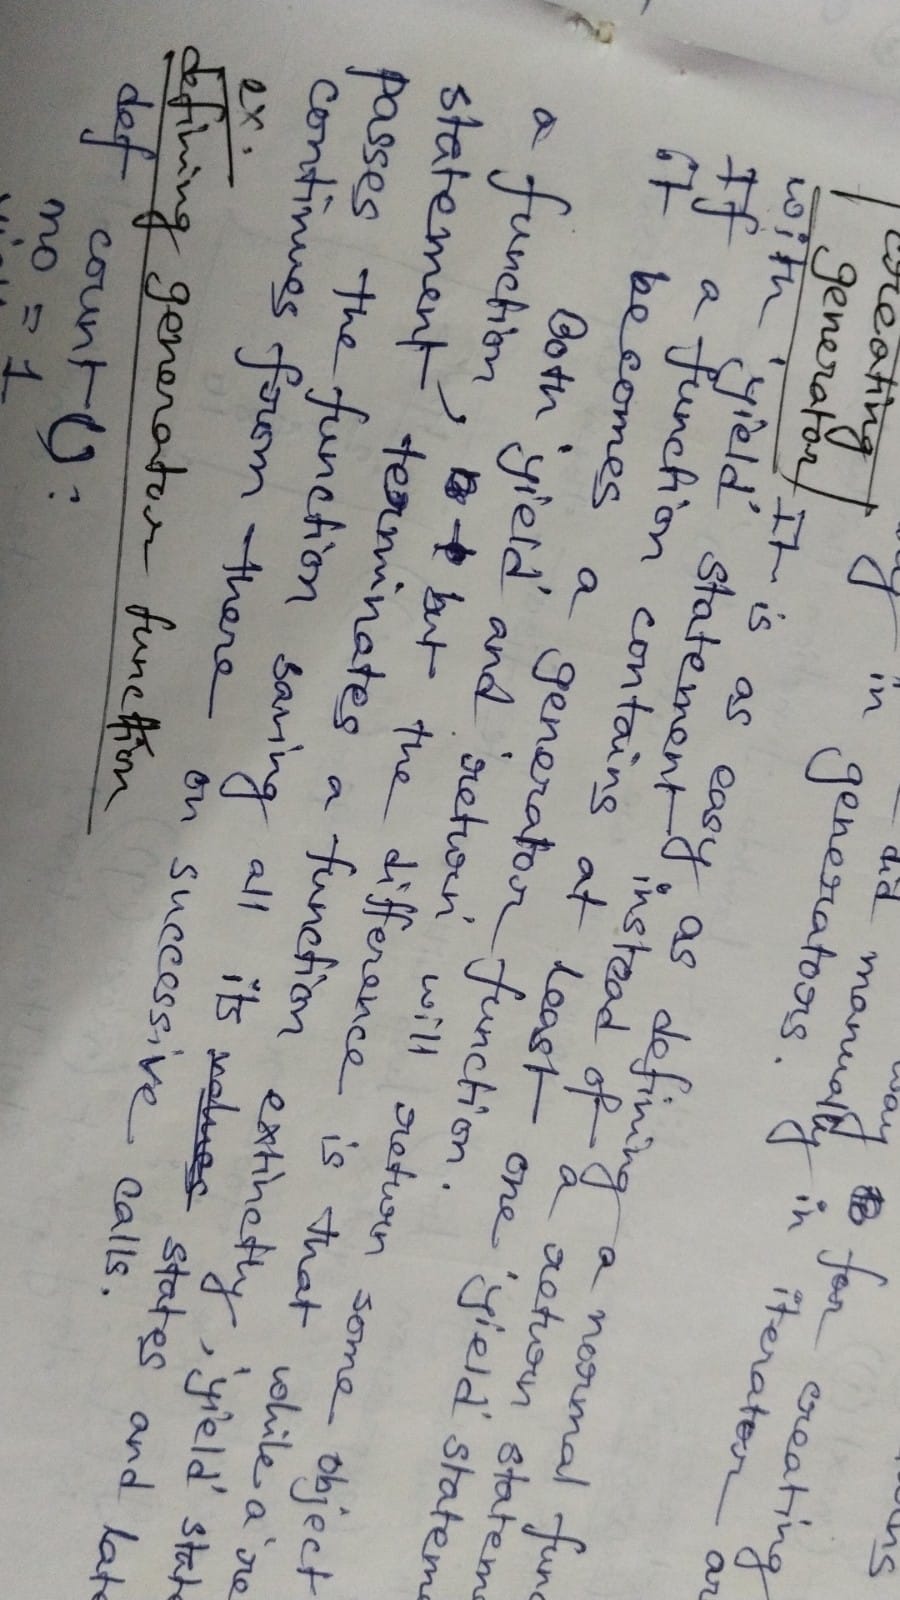 way for creating
did manually in iterator
in generators.
creating
generator
It is as easy as defining a normal func
with 'yield' statement instead of a return statem
If a function contains at least one 'yield' statem
it becomes a generator function.
Both 'yield' and 'return' will return some object
a function, but the difference is that while a 're
statement terminates a function extinctly, 'yield' stat
passes the function saving all its values states and late
continues from there on successive calls.
ex.
defining generator function
def count():
no = 1